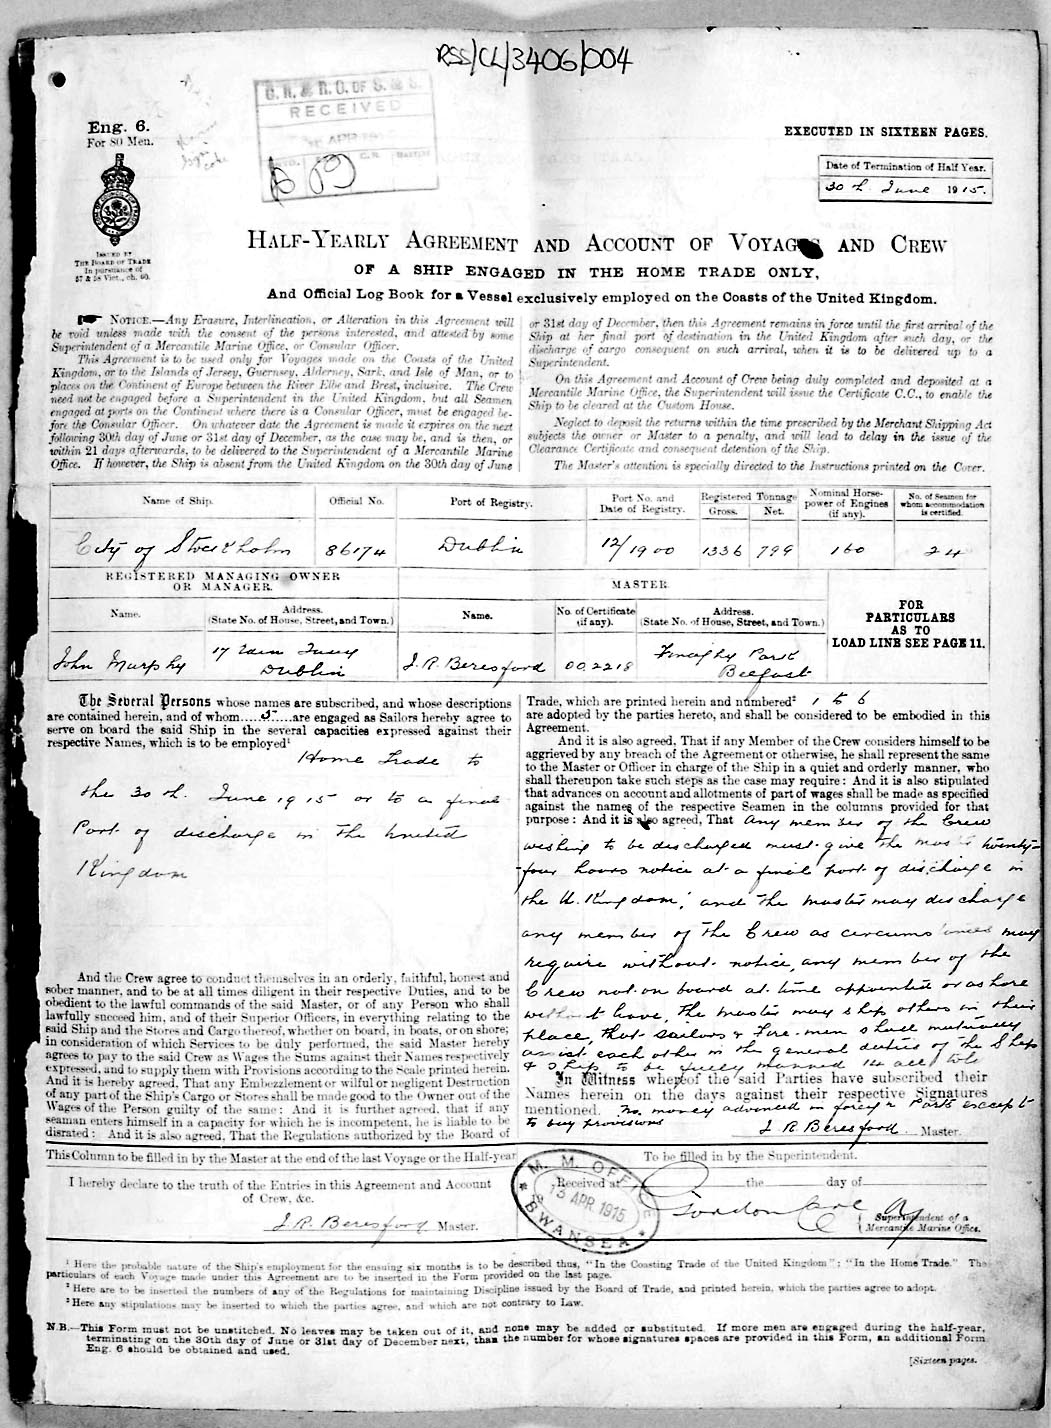 RSS/CL/3406/004
Eng. 6.
For 80 Men.
G. R. & R. O. OF S. & S.
RECEIVED
APR
EXECUTED IN SIXTEEN PAGES.
Date of Termination of Half Year.
30th June 1915.
ISSUED BY
THE BOARD OF TRADE
In pursuance of
57 & 58 Vict., ch. 60.
HALF-YEARLY AGREEMENT AND ACCOUNT OF VOYAGES AND CREW
OF A SHIP ENGAGED IN THE HOME TRADE ONLY,
And Official Log Book for a Vessel exclusively employed on the Coasts of the United Kingdom.
NOTICE.—Any Erasure, Interlineation, or Alteration in this Agreement will
be void unless made with the consent of the persons interested, and attested by some
Superintendent of a Mercantile Marine Office, or Consular Officer.
This Agreement is to be used only for Voyages made on the Coasts of the United
Kingdom, or to the Islands of Jersey, Guernsey, Alderney, Sark, and Isle of Man, or to
places on the Continent of Europe between the River Elbe and Brest, inclusive. The Crew
need not be engaged before a Superintendent in the United Kingdom, but all Seamen
engaged at ports on the Continent where there is a Consular Officer, must be engaged be-
fore the Consular Officer. On whatever date the Agreement is made it expires on the next
following 30th day of June or 31st day of December, as the case may be, and is then, or
within 21 days afterwards, to be delivered to the Superintendent of a Mercantile Marine
Office. If however, the Ship is absent from the United Kingdom on the 30th day of June
or 31st day of December, then this Agreement remains in force until the first arrival of the
Ship at her final port of destination in the United Kingdom after such day, or the
discharge of cargo consequent on such arrival, when it is to be delivered up to a
Superintendent.
On this Agreement and Account of Crew being duly completed and deposited at a
Mercantile Marine Office, the Superintendent will issue the Certificate C.C., to enable the
Ship to be cleared at the Custom House.
Neglect to deposit the returns within the time prescribed by the Merchant Shipping Act
subjects the owner or Master to a penalty, and will lead to delay in the issue of the
Clearance Certificate and consequent detention of the Ship.
The Master's attention is specially directed to the Instructions printed on the Cover.
Name of Ship. Official No. Port of Registry. Port No. and Date of Registry. Registered Tonnage Gross. Net. Nominal Horse-power of Engines (if any). No. of Seamen for whom accommodation is certified.
City of Stockholm 86174 Dublin 12/1900 1336 799 160 24
REGISTERED MANAGING OWNER OR MANAGER. MASTER.
Name. Address. (State No. of House, Street, and Town.) Name. No. of Certificate (if any). Address. (State No. of House, Street, and Town.)
FOR
PARTICULARS
AS TO
LOAD LINE SEE PAGE 11.
John Murphy 17 Dublin J. R. Beresford 002218 Finaghy Park Belfast
The Several Persons whose names are subscribed, and whose descriptions
are contained herein, and of whom....5....are engaged as Sailors hereby agree to
serve on board the said Ship in the several capacities expressed against their
respective Names, which is to be employed¹
Home Trade to
the 30th June 1915 or to a final
Port of discharge in the United
Kingdom
And the Crew agree to conduct themselves in an orderly, faithful, honest and
sober manner, and to be at all times diligent in their respective Duties, and to be
obedient to the lawful commands of the said Master, or of any Person who shall
lawfully succeed him, and of their Superior Officers, in everything relating to the
said Ship and the Stores and Cargo thereof, whether on board, in boats, or on shore;
in consideration of which Services to be duly performed, the said Master hereby
agrees to pay to the said Crew as Wages the Sums against their Names respectively
expressed, and to supply them with Provisions according to the Scale printed herein.
And it is hereby agreed, That any Embezzlement or wilful or negligent Destruction
of any part of the Ship's Cargo or Stores shall be made good to the Owner out of the
Wages of the Person guilty of the same: And it is further agreed, that if any
seaman enters himself in a capacity for which he is incompetent, he is liable to be
disrated: And it is also agreed, That the Regulations authorized by the Board of
Trade, which are printed herein and numbered² 1 to 6
are adopted by the parties hereto, and shall be considered to be embodied in this
Agreement.
And it is also agreed, That if any Member of the Crew considers himself to be
aggrieved by any breach of the Agreement or otherwise, he shall represent the same
to the Master or Officer in charge of the Ship in a quiet and orderly manner, who
shall thereupon take such steps as the case may require: And it is also stipulated
that advances on account and allotments of part of wages shall be made as specified
against the names of the respective Seamen in the columns provided for that
purpose: And it is also agreed, That any member of the Crew
wishing to be discharged must give the master twenty-
four hours notice at a final port of discharge in
the U. Kingdom, and the master may discharge
any member of the Crew as circumstances may
require without notice, any member of the
Crew not on board at time appointed or ashore
without leave, the master may ship others in their
place, that sailors & Firemen shall mutually
assist each other in the general duties of the Ship
& Ship to be fully manned 14 all told
In Witness whereof the said Parties have subscribed their
Names herein on the days against their respective Signatures
mentioned. No money advanced in foreign Ports except
to buy provisions
J. R Beresford Master.
This Column to be filled in by the Master at the end of the last Voyage or the Half-year
I hereby declare to the truth of the Entries in this Agreement and Account
of Crew, &c.
J. R. Beresford Master.
To be filled in by the Superintendent.
Received at the day of
M. M. OFFICE
13 APR 1915
SWANSEA
Gordon
Superintendent of a
Mercantile Marine Office.
¹ Here the probable nature of the Ship's employment for the ensuing six months is to be described thus, "In the Coasting Trade of the United Kingdom"; "In the Home Trade." The
particulars of each Voyage made under this Agreement are to be inserted in the Form provided on the last page.
² Here are to be inserted the numbers of any of the Regulations for maintaining Discipline issued by the Board of Trade, and printed herein, which the parties agree to adopt.
³ Here any stipulations may be inserted to which the parties agree, and which are not contrary to Law.
N.B.—This Form must not be unstitched. No leaves may be taken out of it, and none may be added or substituted. If more men are engaged during the half-year,
terminating on the 30th day of June or 31st day of December next, than the number for whose signatures spaces are provided in this Form, an additional Form
Eng. 6 should be obtained and used.
[Sixteen pages.